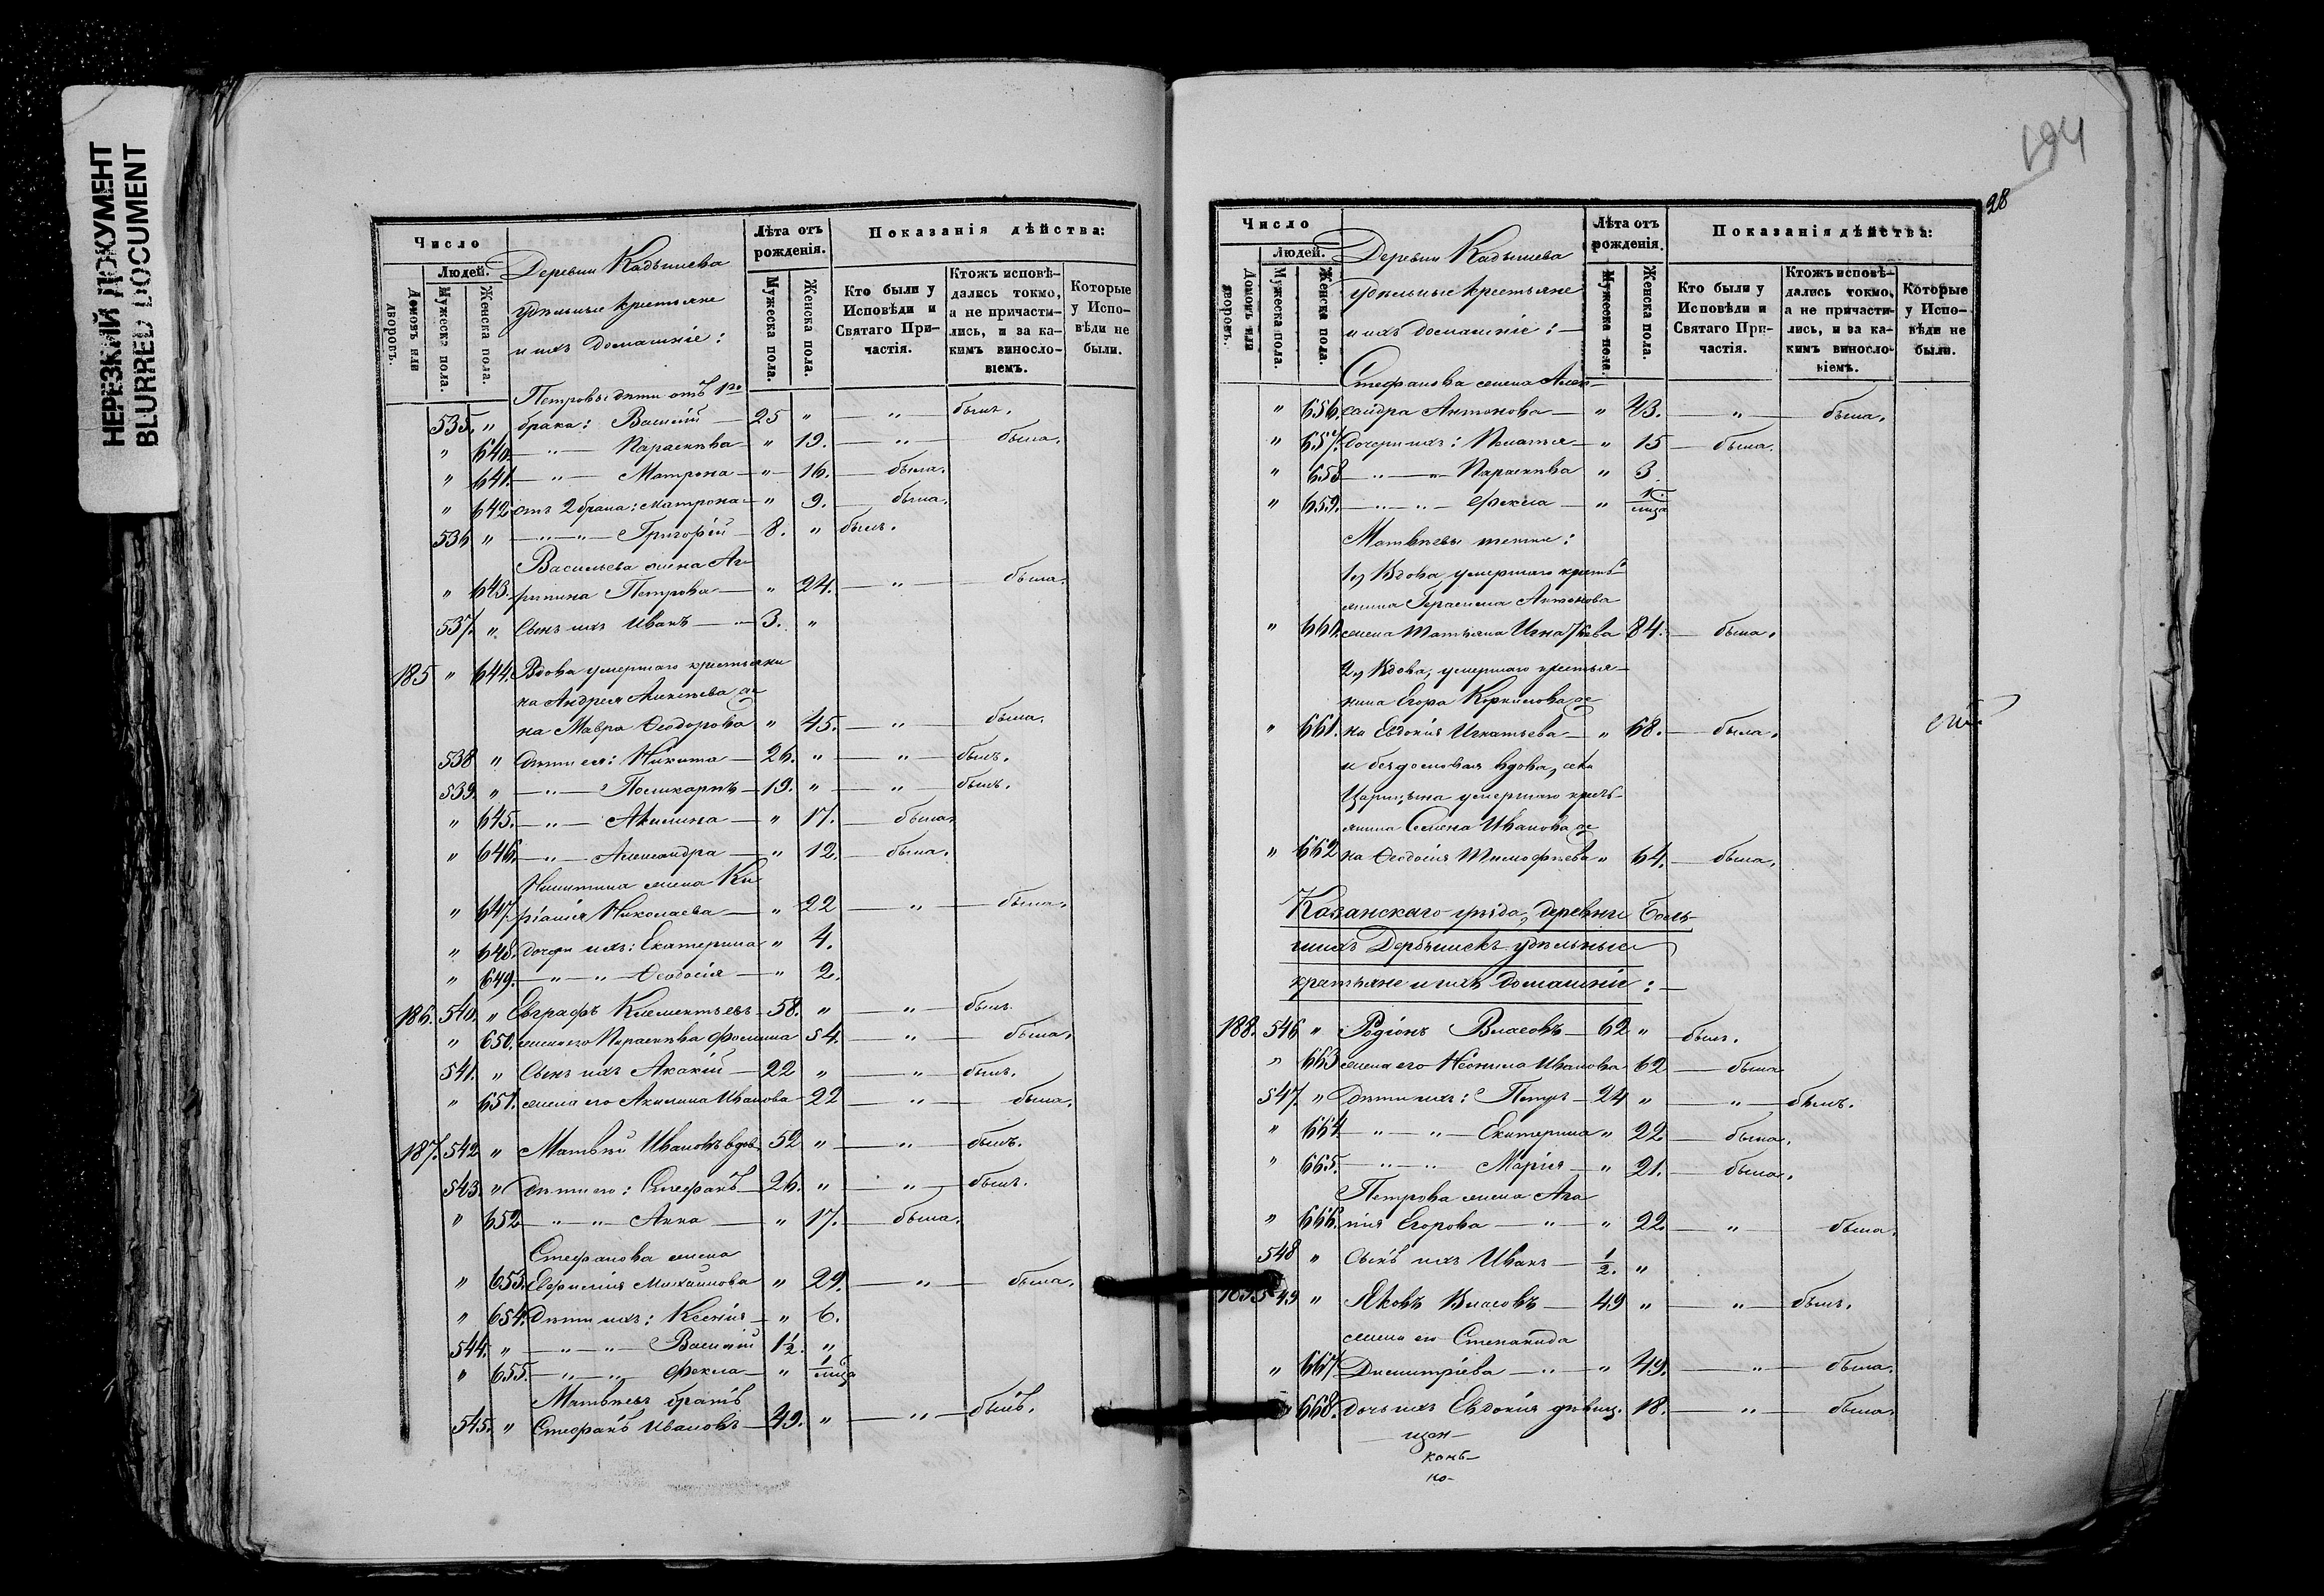 НЕРЕЗКИЙ ДОКУМЕНТ
BLURRED DOCUMENT
Число
Людей.
Домовъ или дворовъ.
Мужеска пола.
Женска пола.
Деревни Кадышева
удѣльные крестьяне
и ихъ домашніе:
Лѣта отъ рожденія.
Мужеска пола.
Женска пола.
Показанія дѣйства:
Кто были у Исповѣди и Святаго Причастія.
Ктожъ исповѣдались токмо, а не причастились, и за какимъ винословіемъ.
Которые у Исповѣди не были.
Петровы дѣти отъ 1го
535. " брака: Василій — 25 " — " — былъ.
" 640. — " — Параскева — " 19. — " — была.
" 641. — " — Матрона — " 16. — была.
" 642. отъ 2 брака: Матрона — " 9. — была.
536 " — " — " — Григорій — 8. " былъ.
Васильева жена Аг
" 643. рипина Петрова — " 24. — " — была.
537. " Сынъ ихъ Иванъ — 3. "
185 " 644. Вдова умершаго крестьяни
на Андрея Алексѣева же
на Мавра Ѳеодорова " 45. — " — была.
538 " Дѣти ея: Никита — 26. " — " — былъ.
539. " — " — Поликарпъ — 19. " — " — былъ.
" 645. — " — Акилина — " 17. — была.
" 646. — " — Александра — " 12. — была.
Никитина жена Ки
" 647. ріакія Николаева — " 22 — " — была.
" 648. дочери ихъ: Екатерина " 4.
" 649. — " — " — Ѳеодосія — " 2.
186. 540. " Евграфъ Климентьевъ — 58. " — " — былъ.
" 650. жена его Параскева Фомина 54. — " — была.
541. " Сынъ ихъ Акакій — 22 " — " — былъ.
" 651. жена его Акилина Иванова 22 — " — была.
187. 542 " Матвѣй Ивановъ вдов. 52 " — " — былъ.
543. " Дѣти его: Стефанъ — 26. " — " — былъ.
" 652 — " — " — Анна — " 17. — была.
Стефанова жена
" 653. Евфимія Михаилова " 29. — " — была.
" 654. Дѣти ихъ: Ксенія — " 6.
544. " — " — " — Василій 1½. "
" 655. — " — " Фекла — "
Матвѣевъ братъ
545. " Стефанъ Ивановъ — 49. " — " — былъ.
194
28
Число
Людей.
Домовъ или дворовъ.
Мужеска пола.
Женска пола.
Деревни Кадышева
удѣльные крестьяне
и ихъ домашніе:
Лѣта отъ рожденія.
Мужеска пола.
Женска пола.
Показанія дѣйства:
Кто были у Исповѣди и Святаго Причастія.
Ктожъ исповѣдались токмо, а не причастились, и за какимъ винословіемъ.
Которые у Исповѣди не были.
Стефанова жена Алек
" 656. сандра Антонова — " 43. — " — была.
" 657. дочери ихъ: — " 15 — была.
" 658 — " — " Параскева " 3.
" 659. — " — " — Фекла — "
Матвѣевы тетки:
1, Вдова умершаго кресть
янина Герасима Антонова
" 660. жена Татьяна Игнатьева 84. — была.
2, Вдова, умершаго крестья
нина Егора Корнилова же
" 661. на Евдокія Игнатьева — " 68. — была.
и бездомовая вдова, села
Царицына умершаго кресть
янина Семена Иванова же
" 662 на Ѳеодосія Тимофѣева " 64. — была.
Казанскаго уѣзда, деревни Боль
шихъ Дербышекъ удѣльные
крестьяне и ихъ домашніе:
188. 546 " Родіонъ Власовъ — 62 " былъ.
" 663 жена его Неонила Иванова 62 — была
547. " Дѣти ихъ: Петръ — 24 " — " — былъ.
" 664 — " — " — Екатерина " 22 — была.
" 665. — " — " Марія — " 21. — была.
Петрова жена Ага
" 666. пія Егорова — " — " 22 — " — была.
548 " Сынъ ихъ Иванъ — ½. "
189 549 " Яковъ Власовъ — 49 " — " — былъ.
жена его Степанида
" 667 Димитріева — " — " 49. — " — была.
" 668. дочь ихъ Евдокія дѣвиц. 18. — " — была.